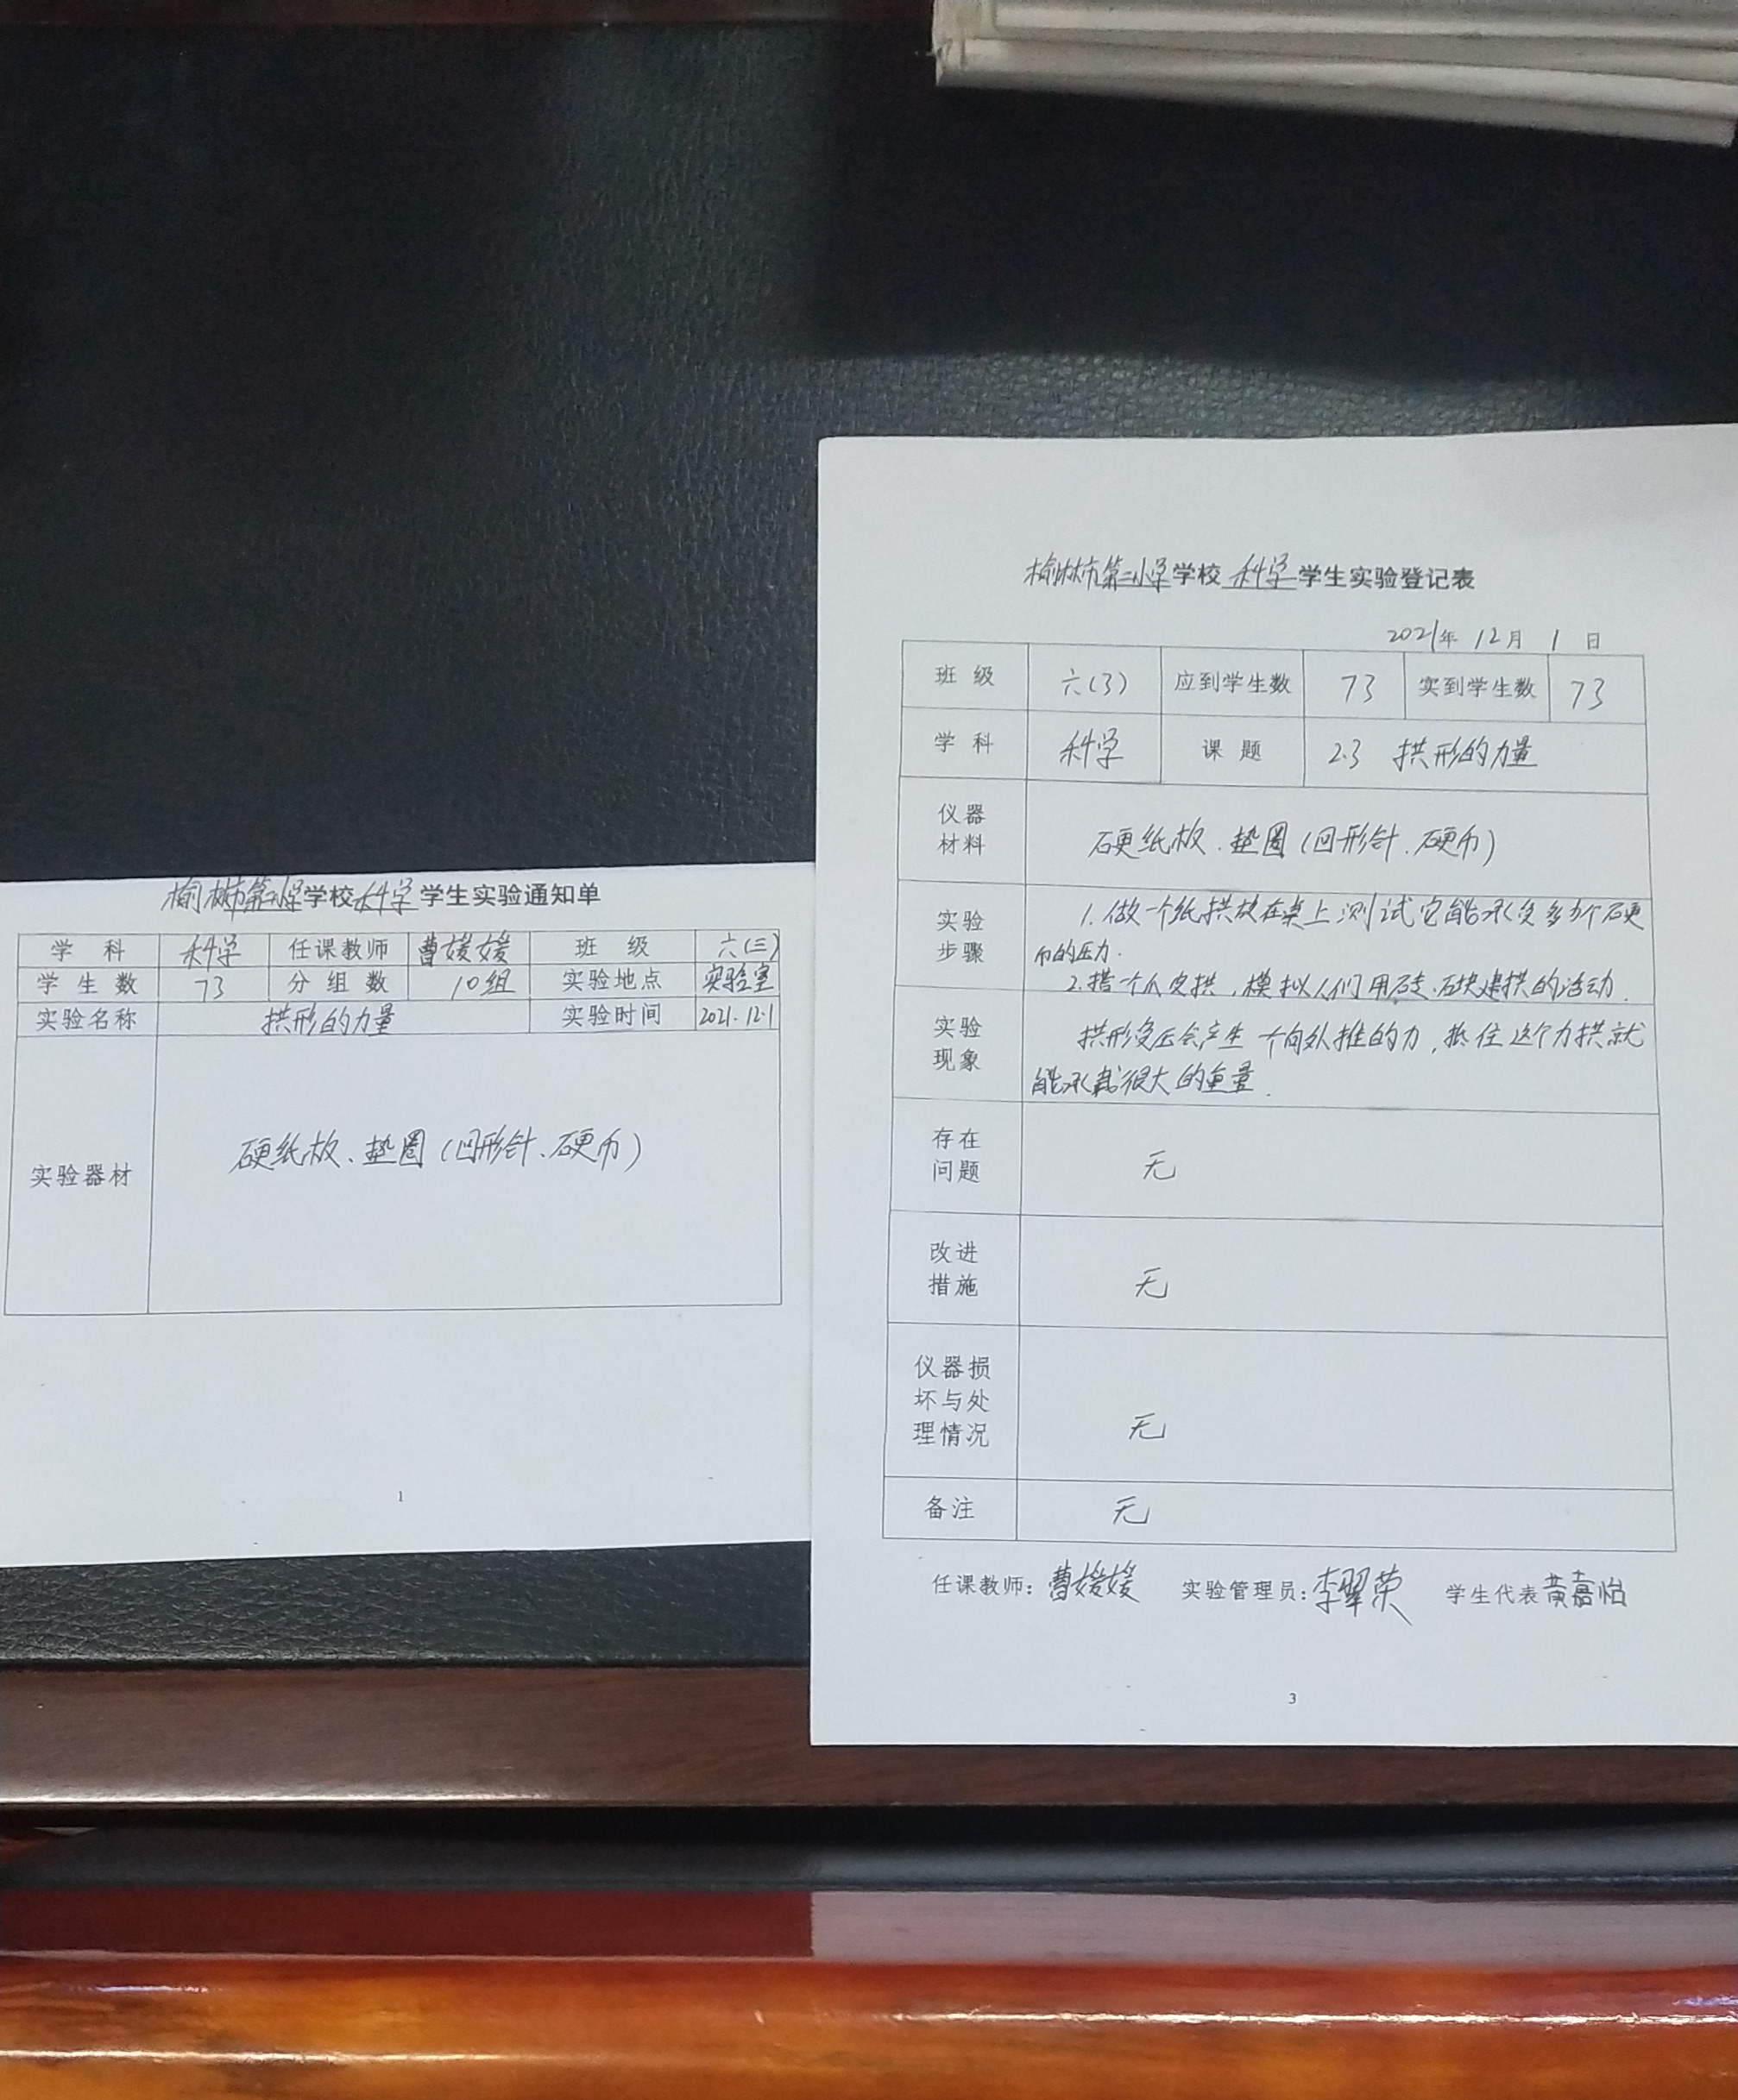 榆树市第二小学学校科学学生实验通知单
学 科 科学 任课教师 曹媛媛 班 级 六(三)
学 生 数 73 分 组 数 10组 实验地点 实验室
实验名称 拱形的力量 实验时间 2021.12.1
实验器材 硬纸板、垫圈(回形针、硬币)
1
榆树市第二小学学校 科学 学生实验登记表
2021年 12月 1 日
班 级 六(3) 应到学生数 73 实到学生数 73
学 科 科学 课 题 2.3 拱形的力量
仪器
材料
硬纸板、垫圈(回形针、硬币)
实验
步骤
1.做一个纸拱放在桌上测试它能承受多少个硬
币的压力.
2.搭一个瓜皮拱,模拟人们用砖、石块建拱的活动.
实验
现象
拱形受压会产生一个向外推的力,抵住这个力拱就
能承载很大的重量.
存在
问题
无
改进
措施
无
仪器损
坏与处
理情况
无
备注 无
任课教师:曹媛媛 实验管理员:李翠荣 学生代表黄嘉怡
3